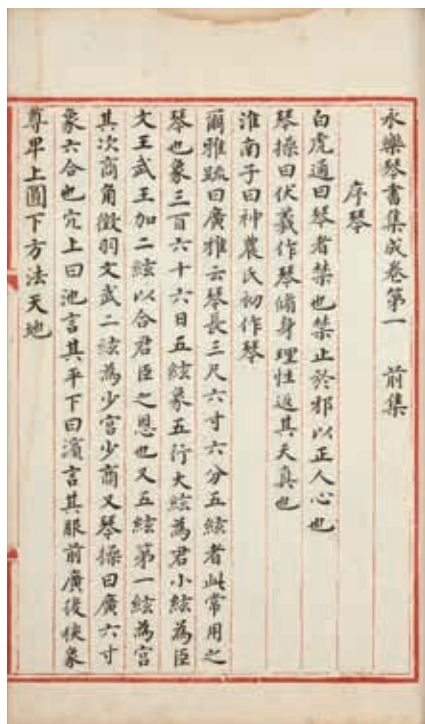 永樂琴書集成卷第一　前集
序琴
白虎通曰琴者禁也禁止於邪以正人心也
琴操曰伏羲作琴脩身理性返其天真也
淮南子曰神農氏初作琴
爾雅疏曰廣雅云琴長三尺六寸六分五絃者此常用之
琴也象三百六十六日五絃象五行大絃為君小絃為臣
文王武王加二絃以合君臣之恩也又五絃第一絃為宮
其次商角徵羽文武二絃為少宮少商又琴操曰廣六寸
象六合也穴上曰池言其平下曰濱言其服前廣後狹象
尊卑上圓下方法天地